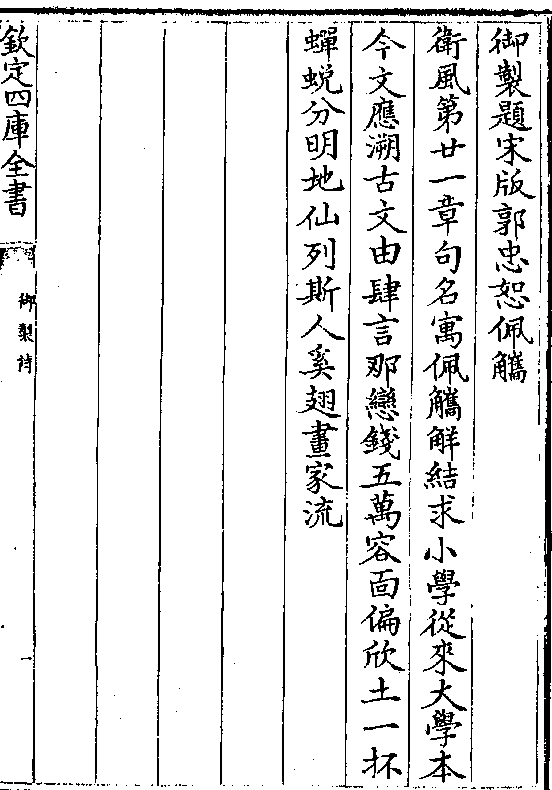 御製題宋版郭忠恕佩觿
衛風第廿一章句名寓佩觿觧結求小學從來大學本
今文應溯古文由肆言那戀錢五萬容靣偏欣土一抔
蟬蛻分明地仙列斯人奚翅畫家流
欽定四庫全書
御製詩
一